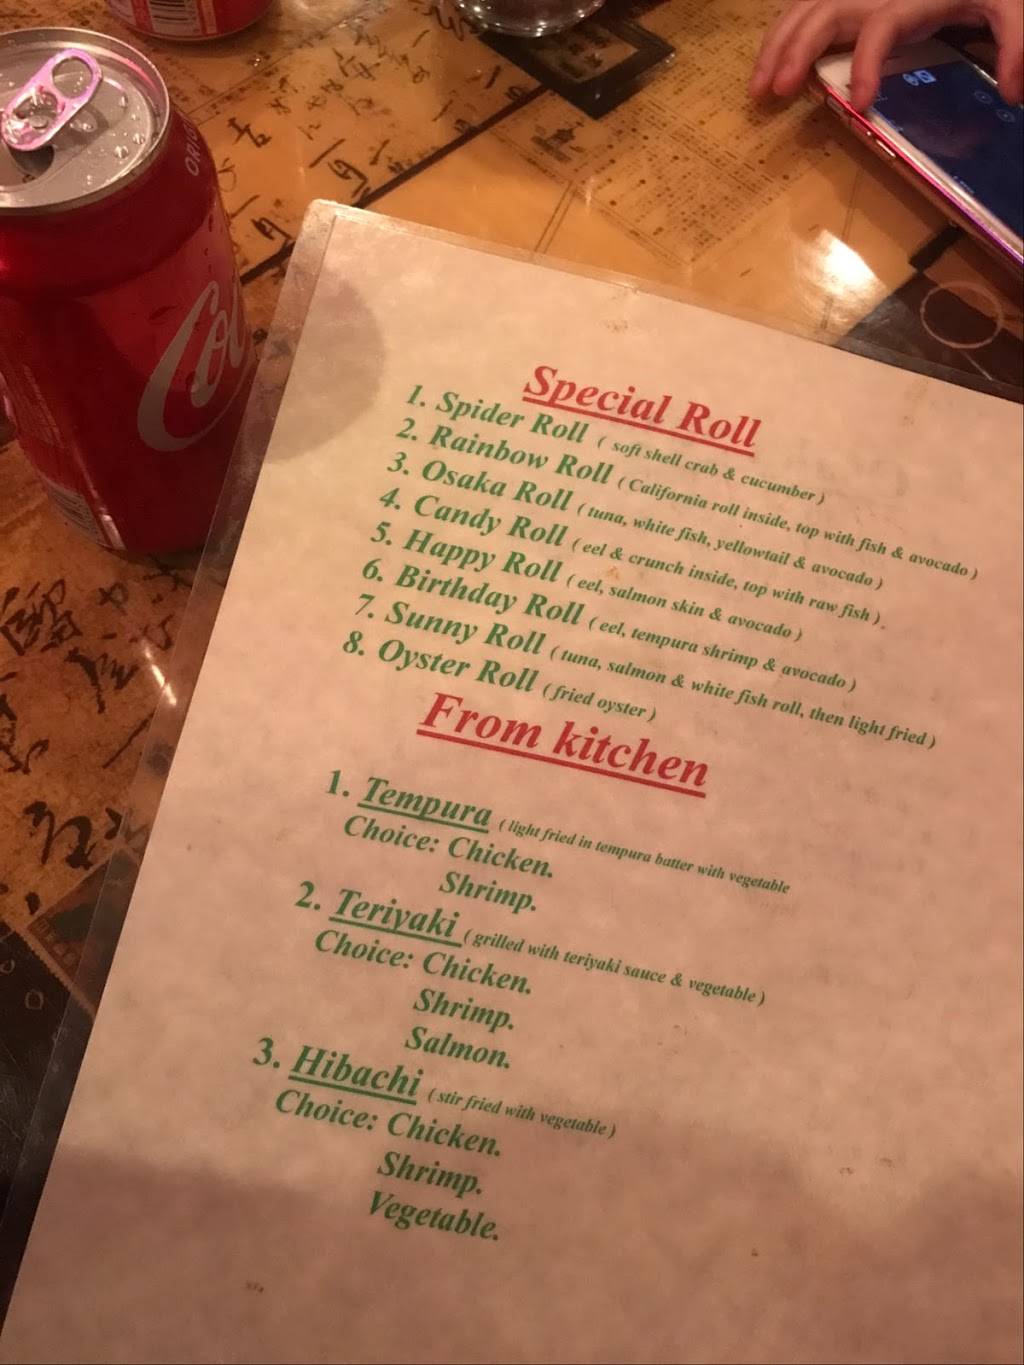 ORIG
Col
Special Roll
1. Spider Roll ( soft shell crab & cucumber )
2. Rainbow Roll ( California roll inside, top with fish & avocado )
3. Osaka Roll ( tuna, white fish, yellowtail & avocado )
4. Candy Roll ( eel & crunch inside, top with raw fish ).
5. Happy Roll ( eel, salmon skin & avocado )
6. Birthday Roll ( eel, tempura shrimp & avocado )
7. Sunny Roll ( tuna, salmon & white fish roll, then light fried )
8. Oyster Roll ( fried oyster )
From kitchen
1. Tempura ( light fried in tempura batter with vegetable
Choice: Chicken.
Shrimp.
2. Teriyaki ( grilled with teriyaki sauce & vegetable )
Choice: Chicken.
Shrimp.
Salmon.
3. Hibachi ( stir fried with vegetable )
Choice: Chicken.
Shrimp.
Vegetable.